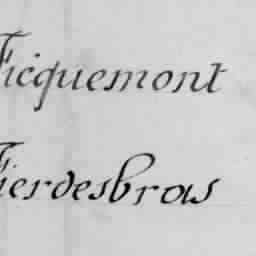 Ficquemont
Fierdesbras